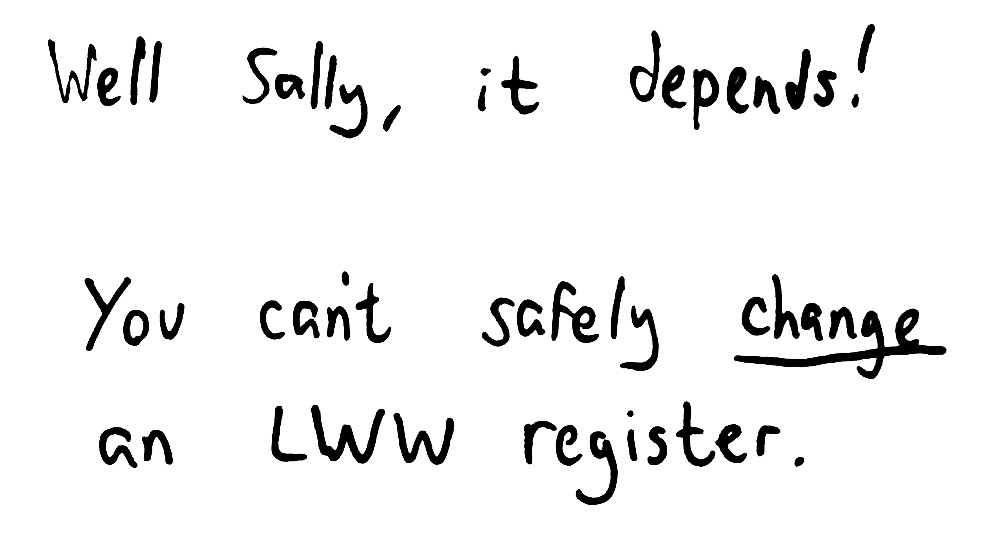 Well Sally, it depends!
You can't safely change
an LWW register.